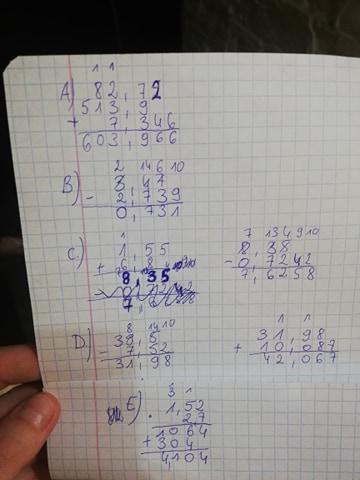 1 1
A) 82,72
513,9
+ 7,346
603,966
2 14 6 10
B) 3,47
- 2,739
0,731
1
C) 1,55
+ 6,8
8,35
7 13 4 9 10
8,38
- 0,7242
7,6258
8 14 10
D) 39,5
- 7,52
31,98
1 1
31,98
+ 10,087
42,067
3 1
E) 1,52
· 27
1064
+ 304
4,104